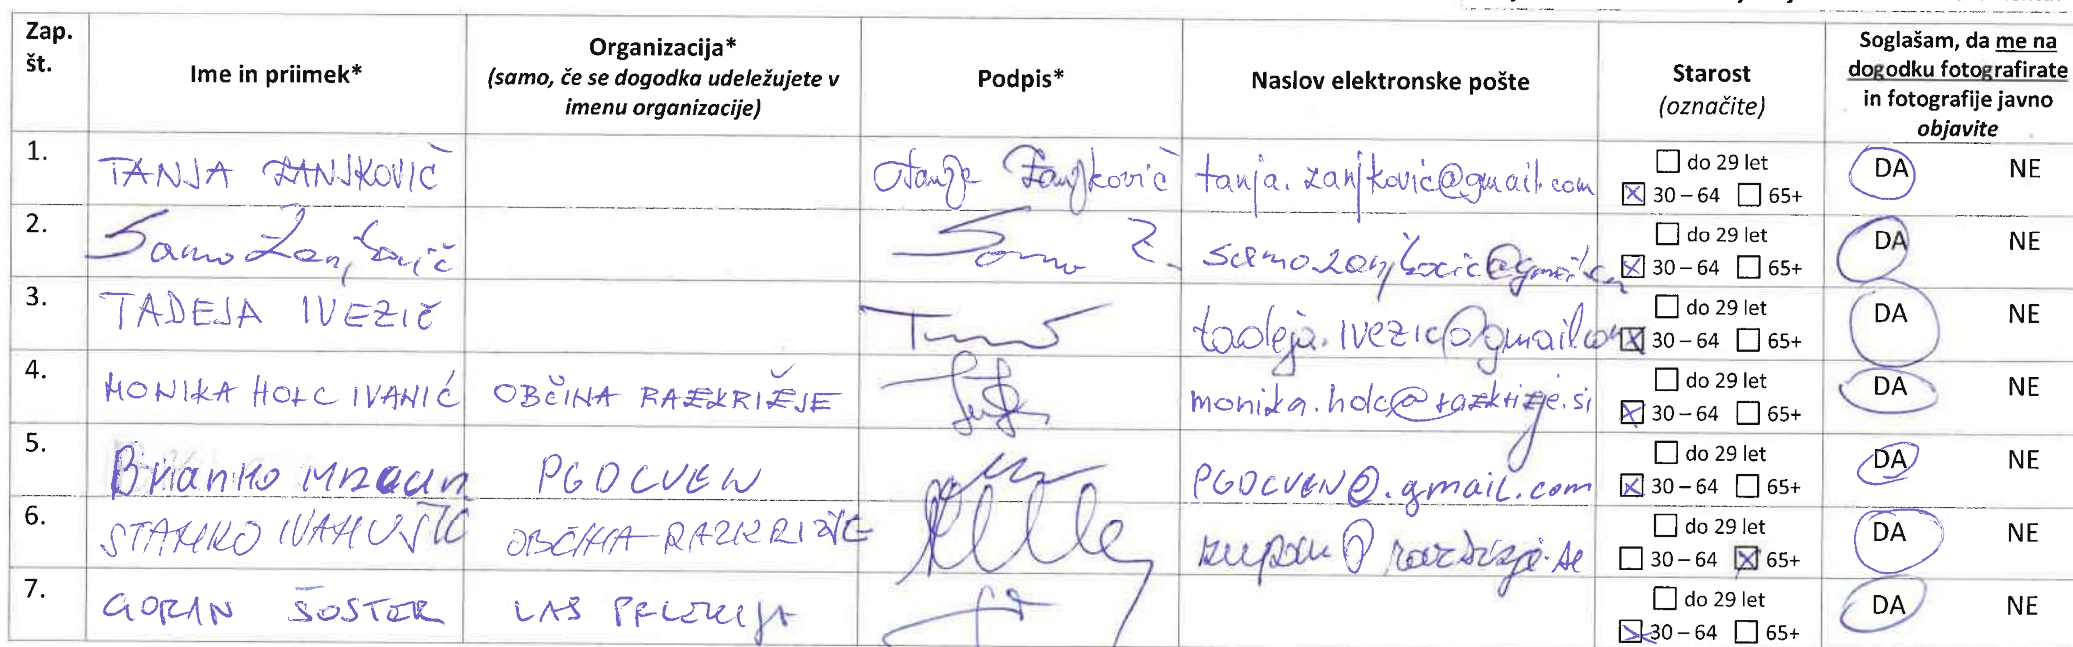 Zap. št. Ime in priimek* Organizacija* (samo, če se dogodka udeležujete v imenu organizacije) Podpis* Naslov elektronske pošte Starost (označite) Soglašam, da me na dogodku fotografirate in fotografije javno objavite
1. TANJA ZANJKOVIČ Tanja Zanjkovič tanja.zanjkovic@gmail.com do 29 let 30 – 64 65+ DA NE
2. Samo Zanjkovič Samo Z. samozanjkovic@gmail.com do 29 let 30 – 64 65+ DA NE
3. TADEJA IVEZIČ tadeja.ivezic@gmail.com do 29 let 30 – 64 65+ DA NE
4. MONIKA HOLC IVANIĆ OBČINA RAZKRIŽJE monika.holc@razkrizje.si do 29 let 30 – 64 65+ DA NE
5. Branko PGD CVEN PGDCVEN@.gmail.com do 29 let 30 – 64 65+ DA NE
6. STANKO IVANUŠIČ OBČINA RAZKRIŽJE zupan@razkrizje.si do 29 let 30 – 64 65+ DA NE
7. GORAN ŠOSTER LAS PRLEKIJA do 29 let 30 – 64 65+ DA NE